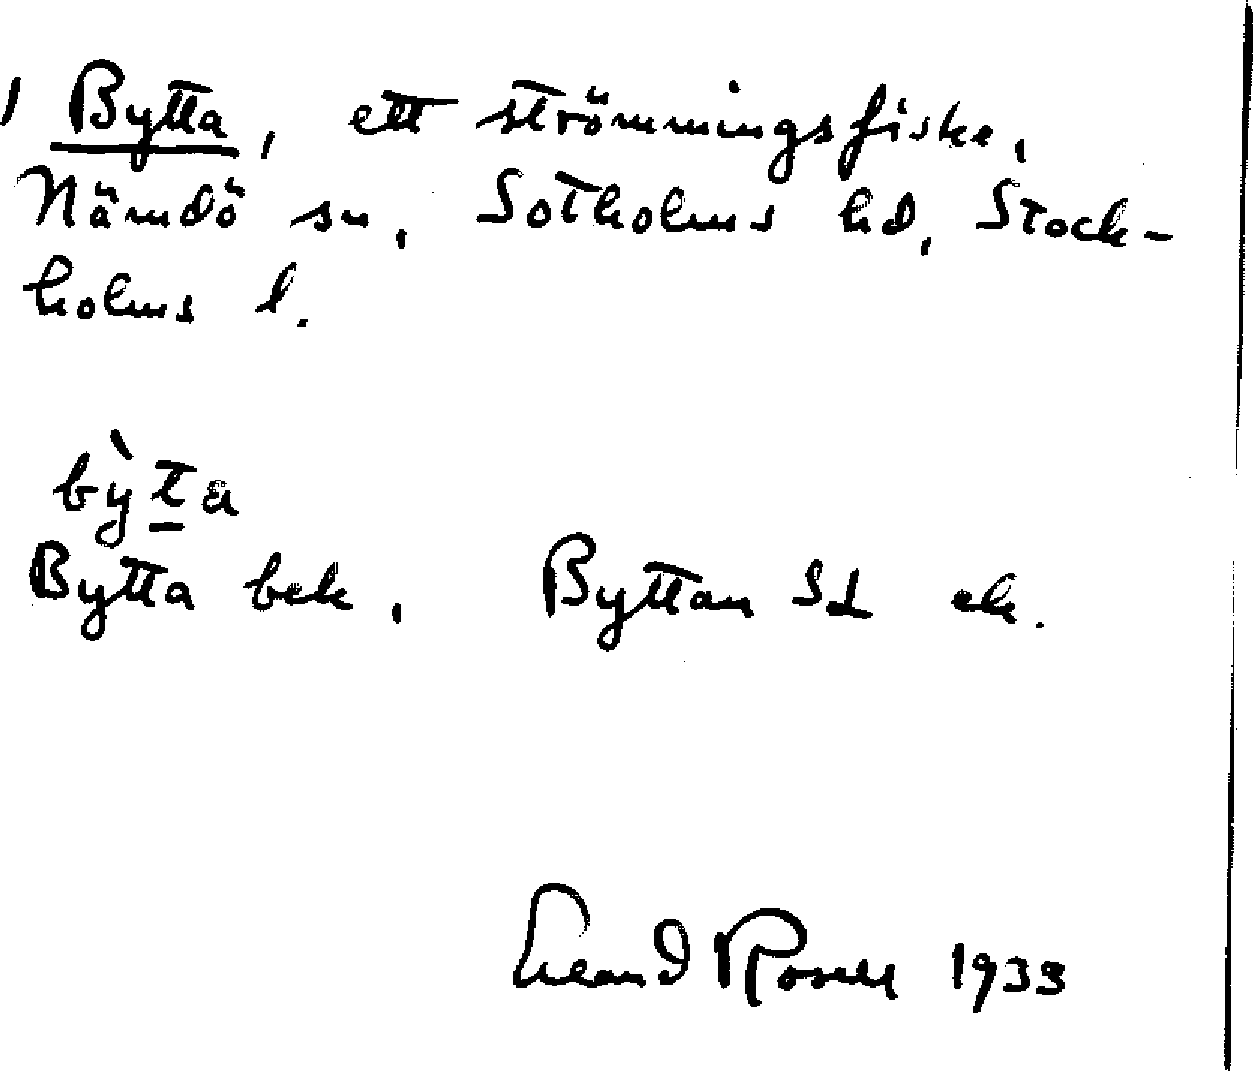 ) Bytta, ett strömmingsfiske,
Nämdö sn, Sotholms hd, Stock-
holms l.
by̌̀ṯa
Bytta bek, Byttan Sd ek.
Erland Rosell 1933